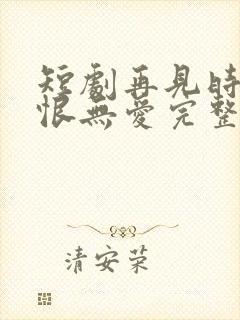 短劇再見時
恨無愛完整
清安荣